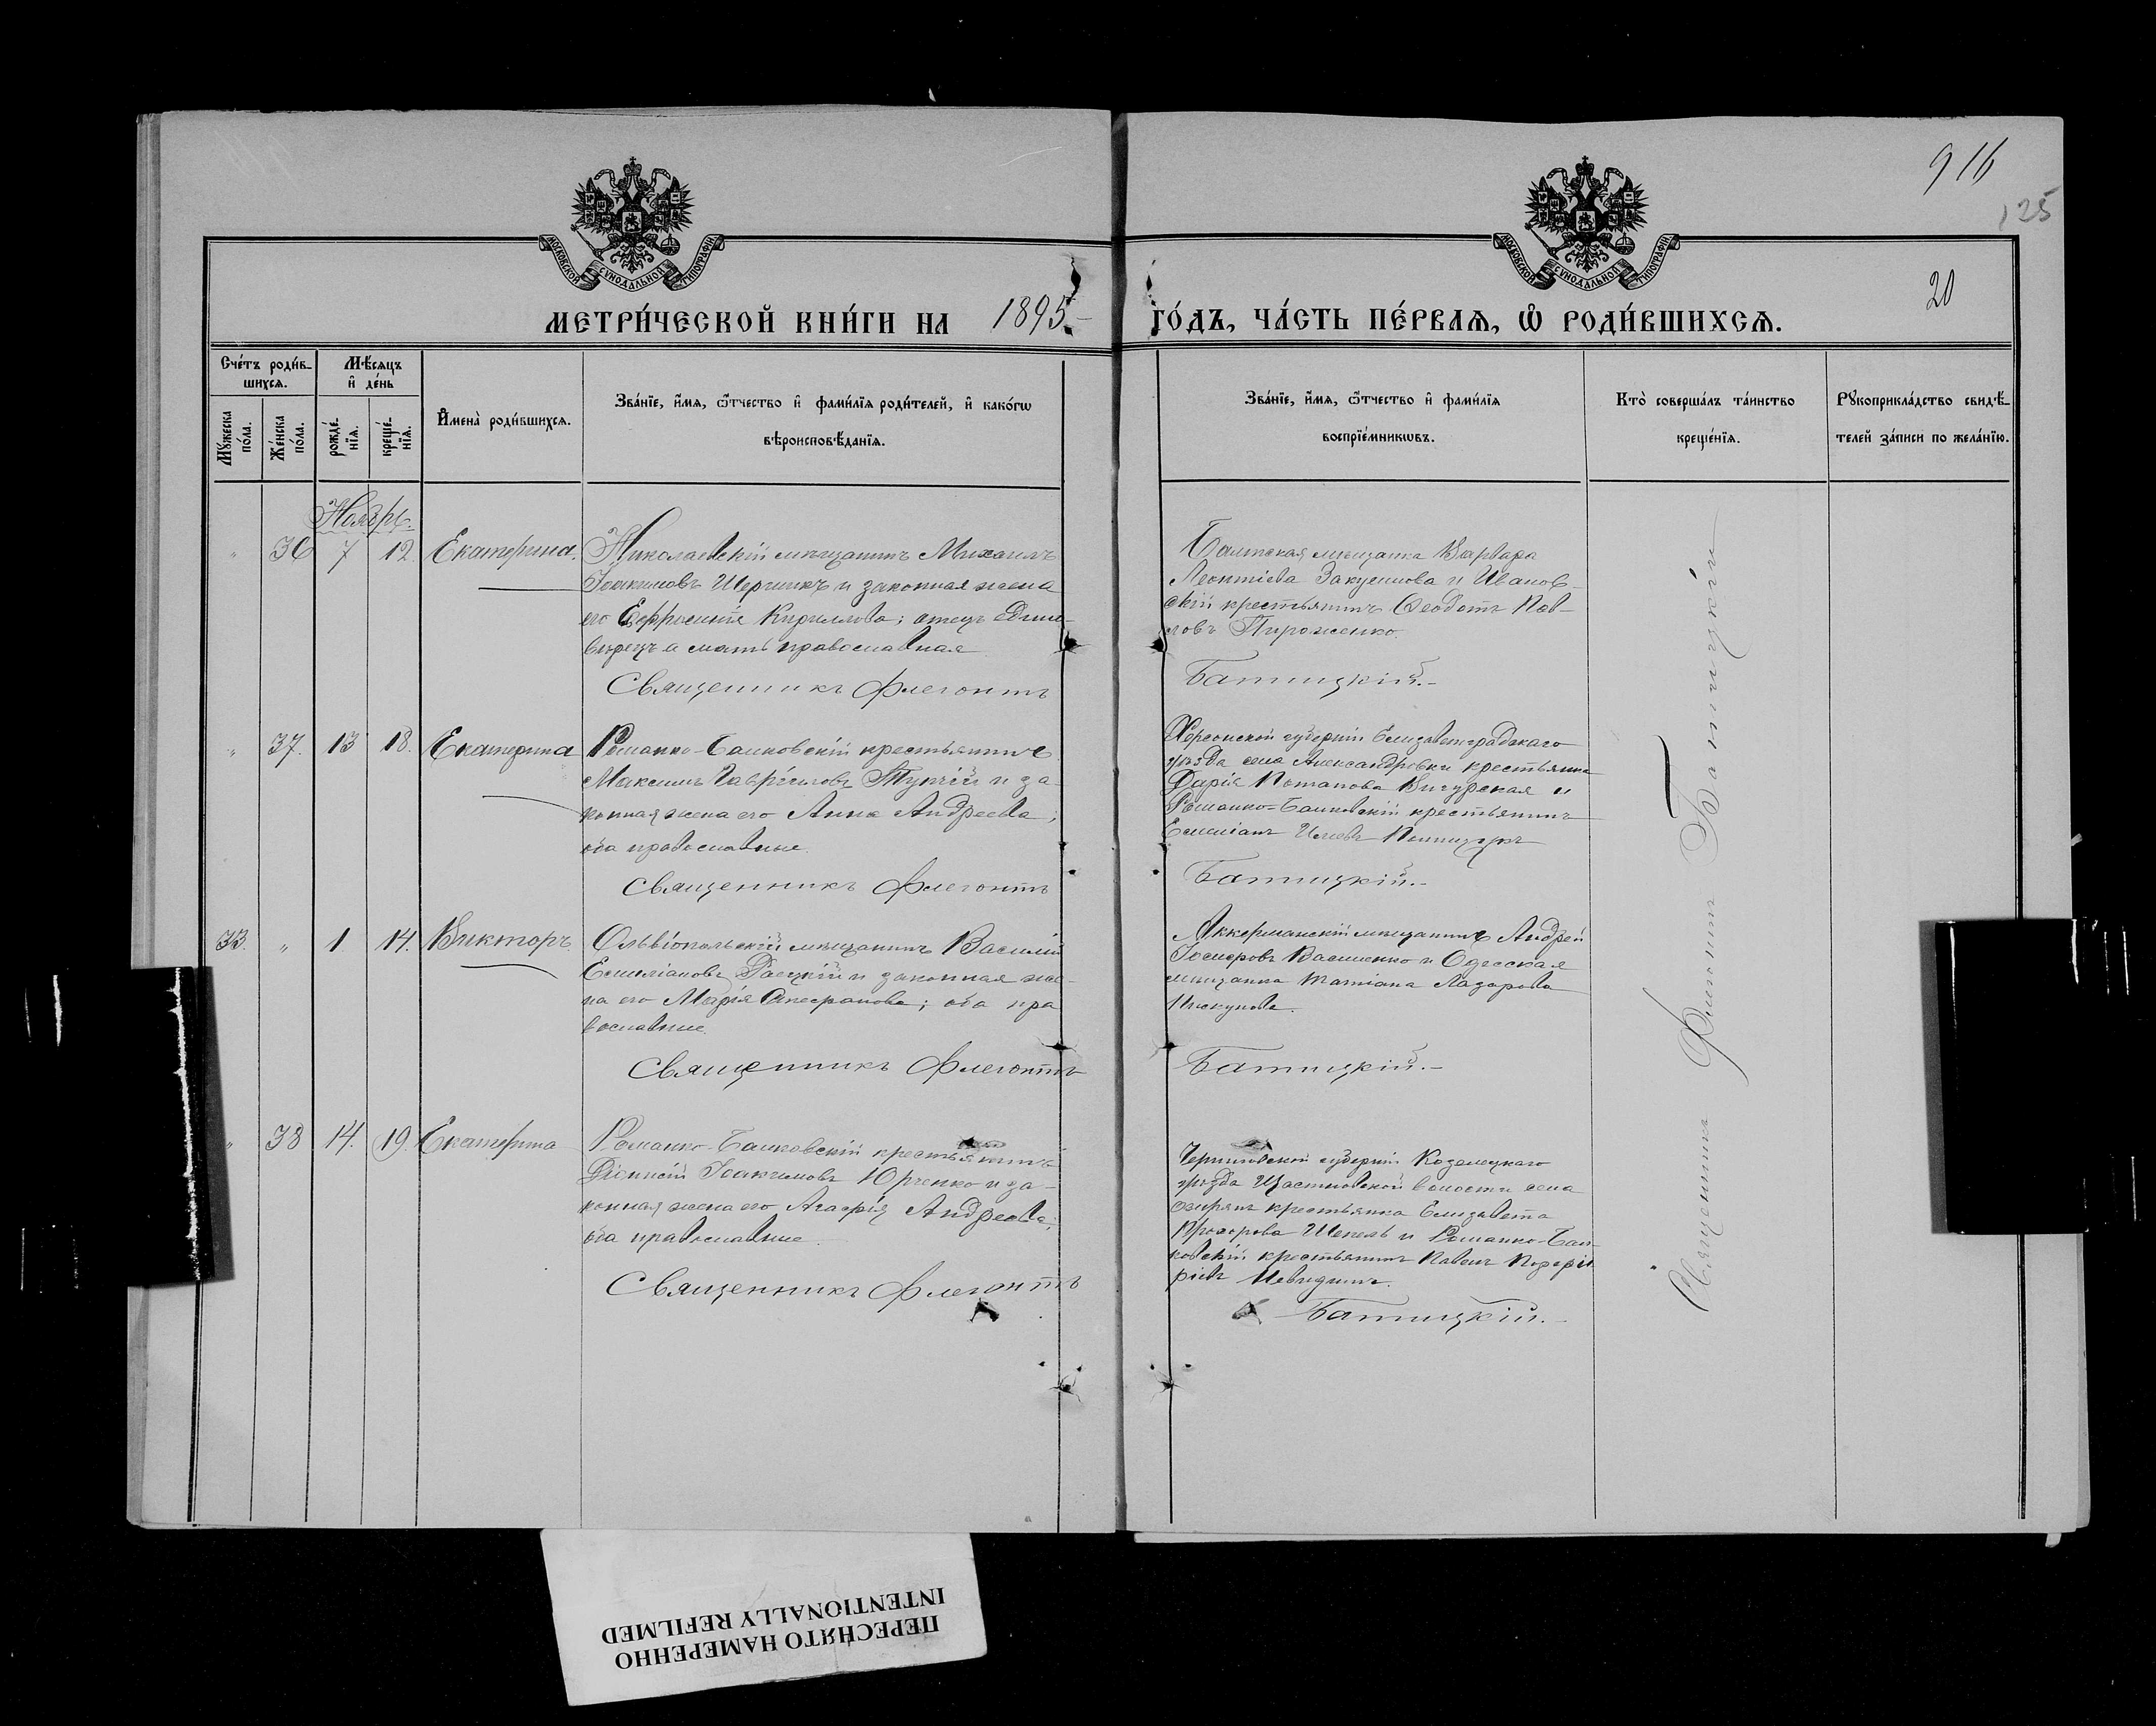 916
125
20
МОСКОВСКОЙ СѴНОДАЛЬНОЙ ТИПОГРАФІИ
МОСКОВСКОЙ СѴНОДАЛЬНОЙ ТИПОГРАФІИ
МЕТРИ́ЧЕСКОЙ КНИ́ГИ НА 1895.- ГО́ДЪ, ЧА́СТЬ ПЕ́РВАЯ, Ѡ РОДИ́ВШИХСѦ.
Сче́тъ роди́в-
шихсѧ.
Мꙋ́жеска
по́ла.
Же́нска
по́ла.
Мѣ́сѧцъ
и҆ де́нь
рожде́-
нїѧ.
креще́-
нїѧ.
И҆мена̀ роди́вшихсѧ.
Зва́нїе, и҆́мѧ, ѻ҆́тчество и҆ фамі́лїѧ роди́телей, и҆ како́гѡ
вѣроисповѣ́данїѧ.
Зва́нїе, и҆́мѧ, ѻ҆́тчество и҆ фамі́лїѧ
воспрїе́мникѡвъ.
Кто̀ соверша́лъ та́инство
креще́нїѧ.
Рꙋкоприкла́дство свидѣ́-
телей за́писи по жела́нїю.
Ноябрь.
" 36 7 12. Екатерина.
Николаевскій мѣщанинъ Михаилъ
Іоакимовъ и законная жена
его Ефросинія Кириллова; отецъ едино-
вѣрецъ а мать православная
Священникъ Флегонтъ
Балтская мѣщанка Варвара
Леонтіева и Иванов-
скій крестьянинъ Ѳеодотъ Пав-
ловъ Пироженко.
Батицкій.-
" 37. 13 18. Екатерина
Романко-Балковскій крестьянинъ
Максимъ Гавріиловъ Тупчій и за-
конная жена его Анна Андреева;
оба православные.
Священникъ Флегонтъ
Херсонской губерніи Елизаветградскаго
уѣзда села Александровки крестьянка
Дарія Потапова и
Романко-Балковскій крестьянинъ
Емеліанъ
Батицкій.-
33. " 1 14. Викторъ
Ольвіопольскій мѣщанинъ Василій
Емиліановъ и законная же-
на его Марія; оба пра
вославные.
Священникъ Флегонтъ
Аккерманскій мѣщанинъ Андрей
Василенко и Одесская
мѣщанка Татіана Лазарова
Пискунова.
Батицкій.-
" 38 14. 19. Екатерина
Романко-Балковскій крестьянинъ
Діонисій Іоакимовъ Юрченко и за-
конная жена его Агафія Андреева;
оба православные.
Священникъ Флегонтъ
Черниговской губерніи Козелецкаго
уѣзда волости села
крестьянка Елизавета
Прохорова Шепель и Романко-Бал-
ковскій крестьянинъ Павелъ
Батицкій.-
Священникъ Флегонтъ Батицкій
ПЕРЕСНЯТО НАМЕРЕННО
INTENTIONALLY REFILMED